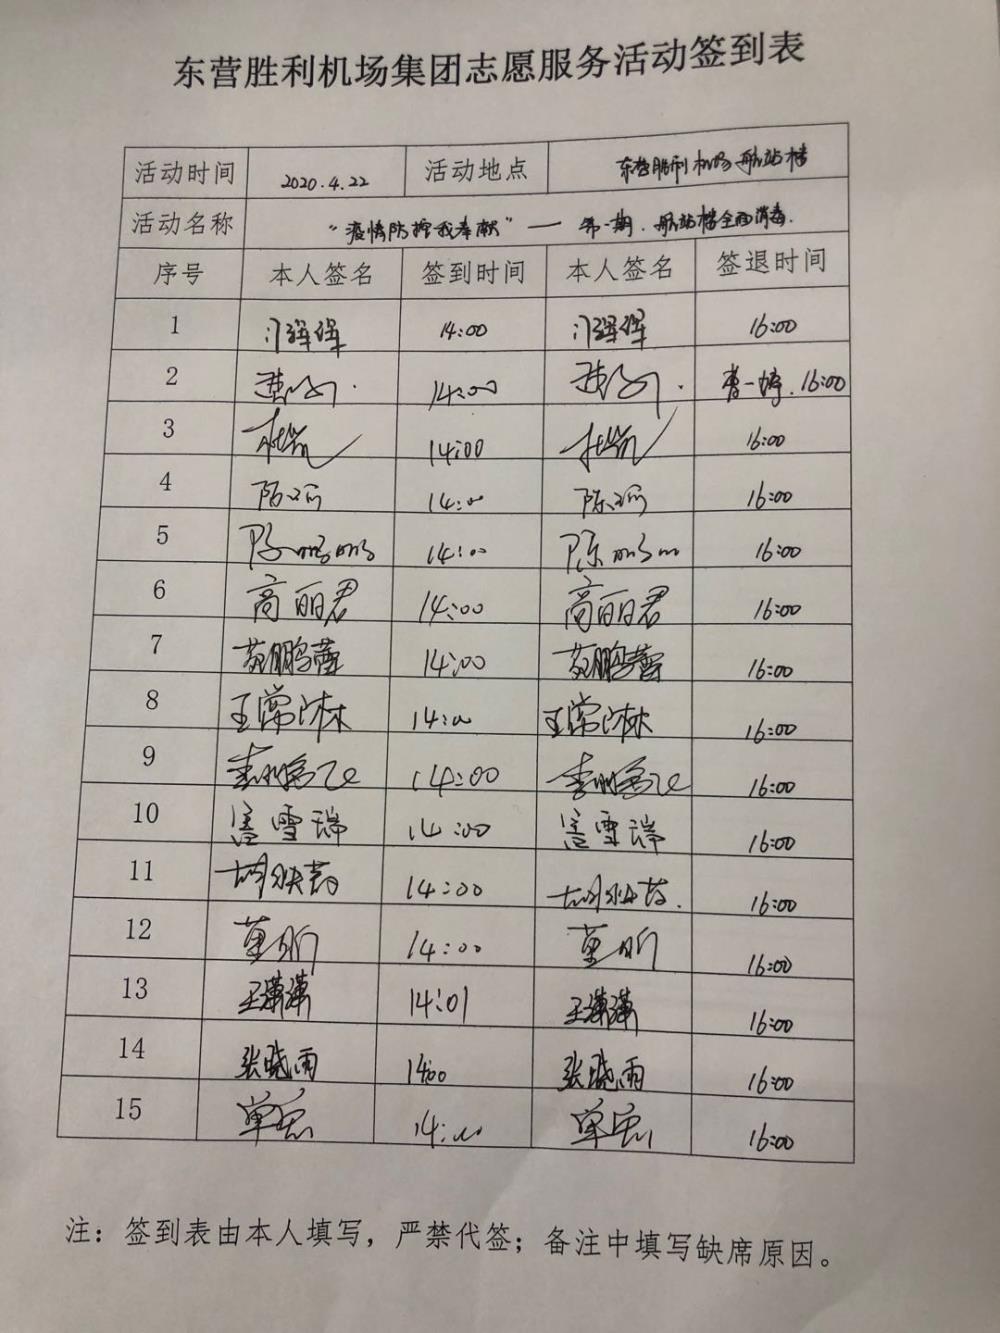 东营胜利机场集团志愿服务活动签到表
活动时间 2020.4.22 活动地点 东营胜利机场航站楼
活动名称 “疫情防控我奉献”—— 第一期.航站楼全面消毒.
序号 本人签名 签到时间 本人签名 签退时间
1 14:00 16:00
2 14:00 曹一婷. 16:00
3 杜凯 14:00 杜凯 16:00
4 14:00 16:00
5 14:00 16:00
6 高丽君 14:00 高丽君 16:00
7 苑鹏蕾 14:00 苑鹏蕾 16:00
8 王常沐 14:00 王常沐 16:00
9 14:00 16:00
10 盖雪瑞 14:00 盖雪瑞 16:00
11 14:00 16:00
12 董昕 14:00 董昕 16:00
13 王潇潇 14:01 王潇潇 16:00
14 张晓雨 14:00 张晓雨 16:00
15 14:00 16:00
注：签到表由本人填写，严禁代签；备注中填写缺席原因。